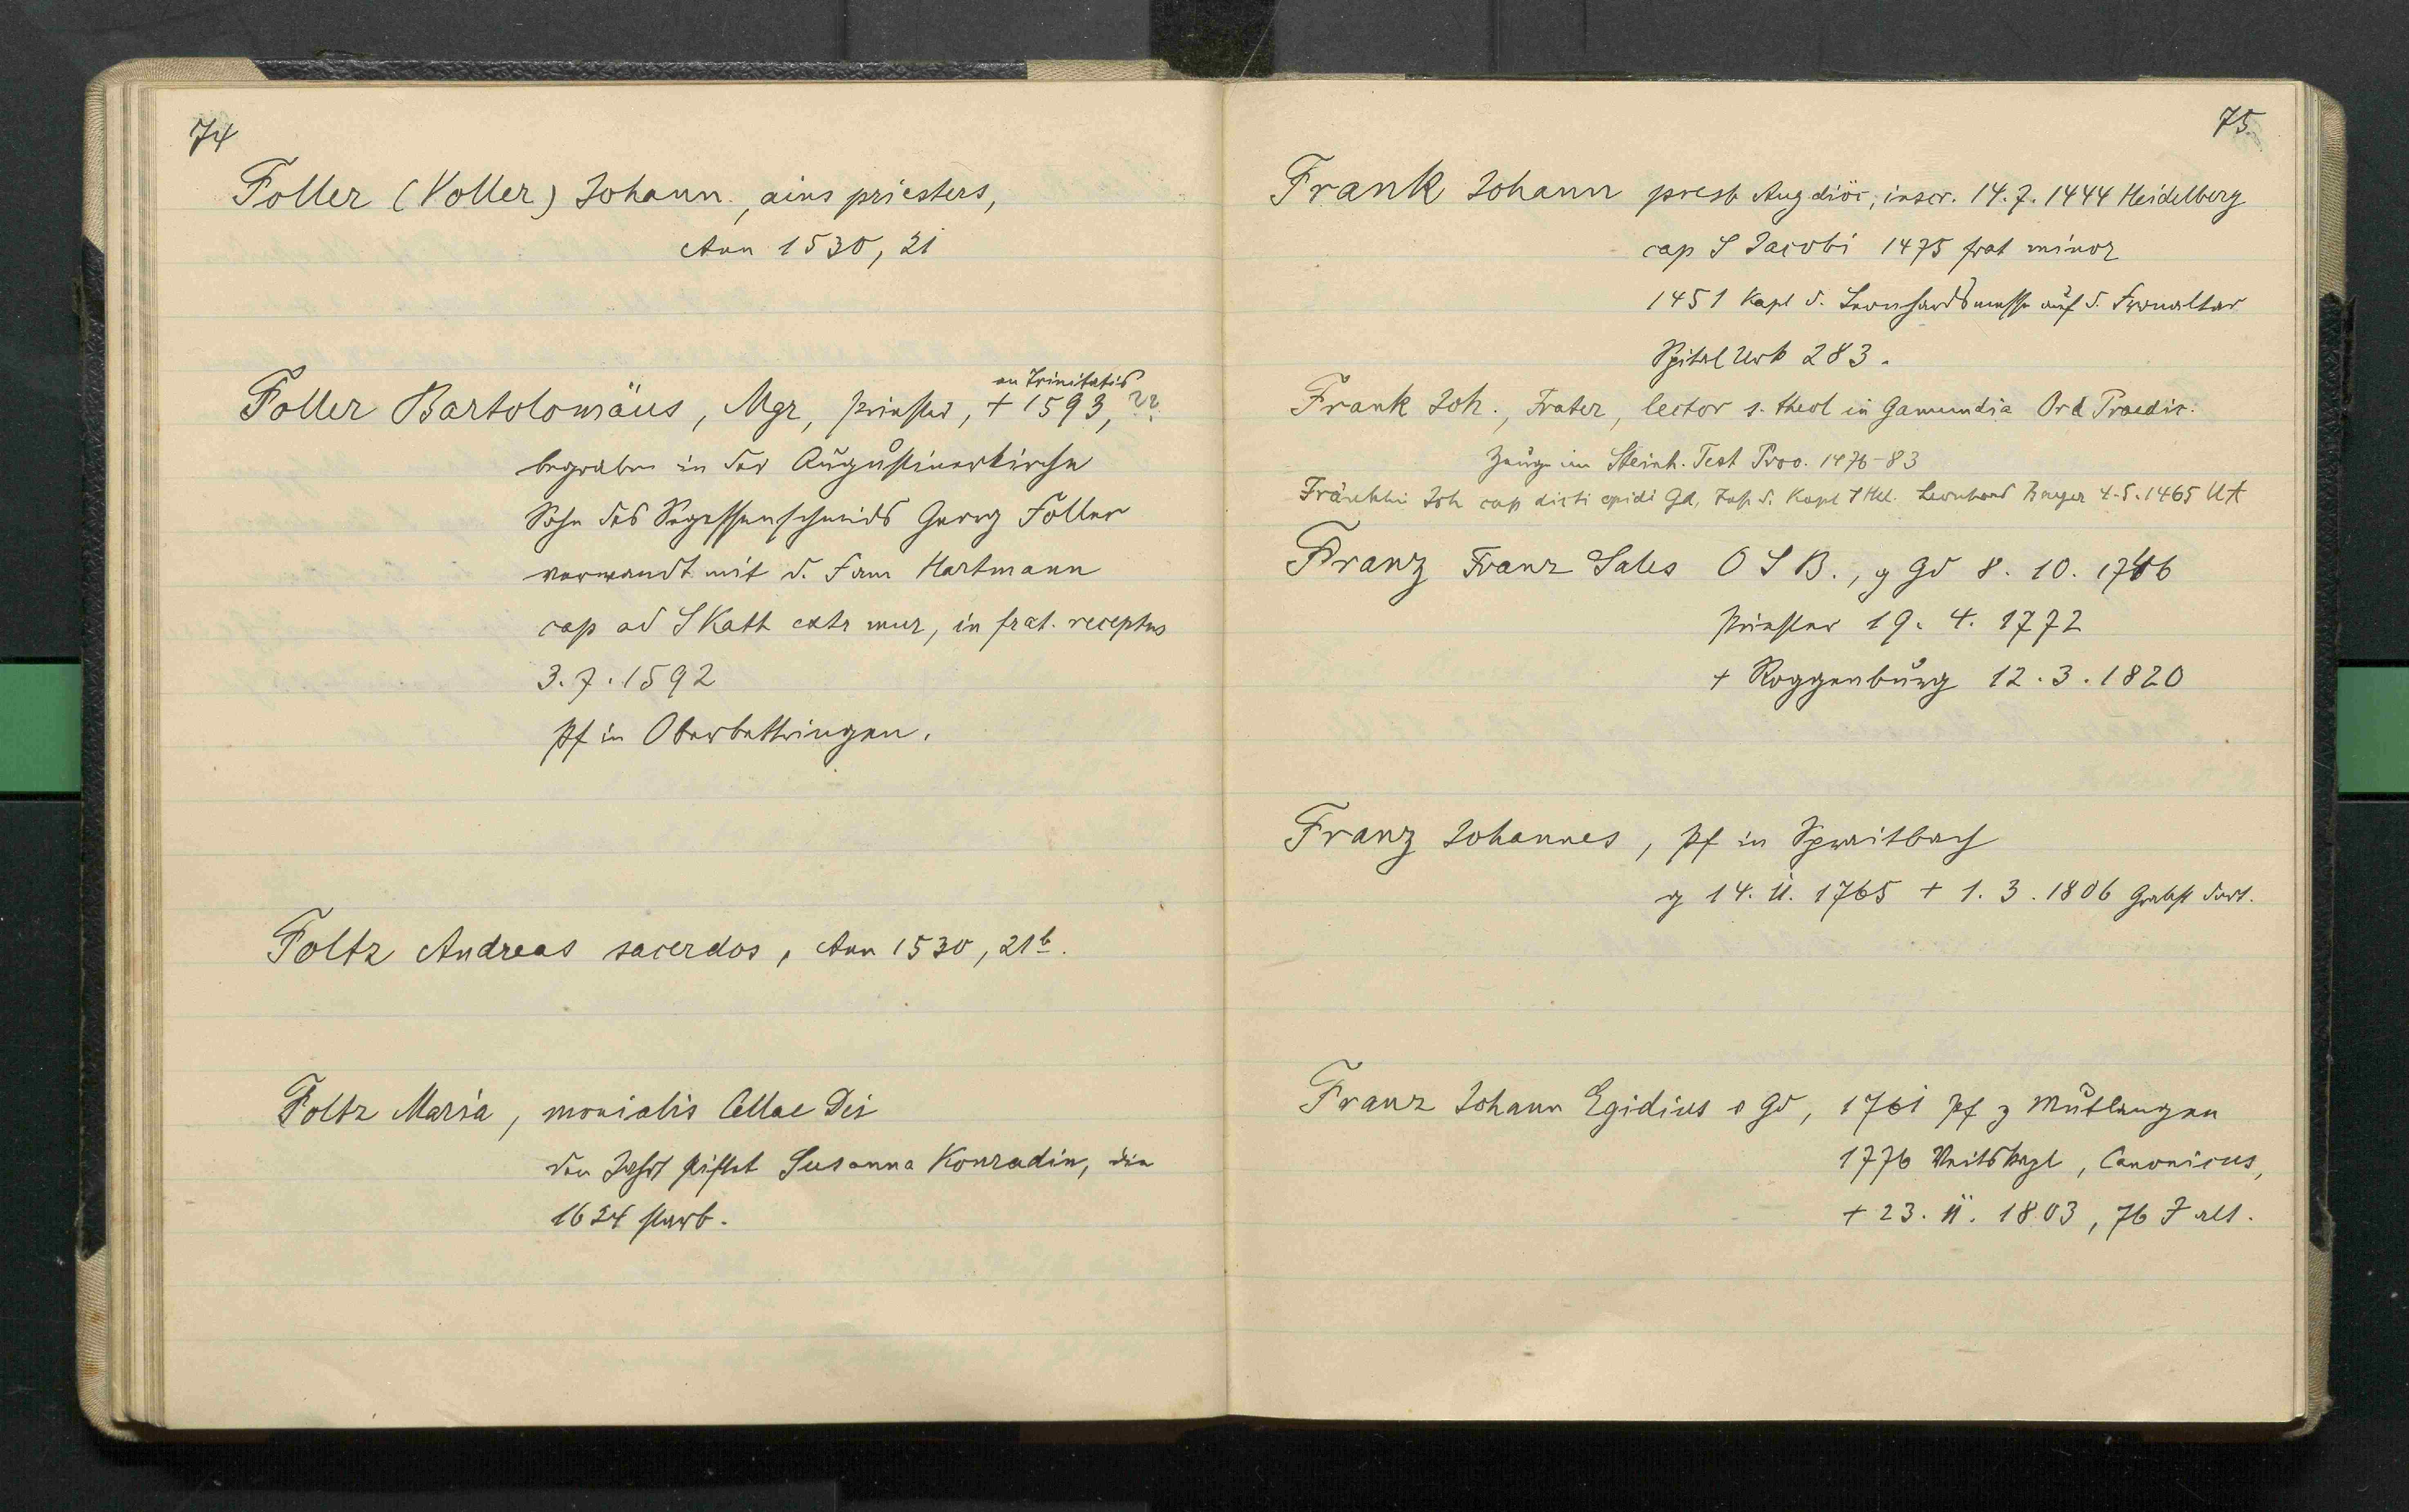 74
Foller (Voller) Johann., ains priesters,
Ann 1530, 21
an Trinitatis
Foller Bartolomäus, Mgr, Priester, + 1593, ??
begraben in der Augustinerkirche
Sohn des Segessenschmids Georg Foller
verwandt mit d. Fam Hartmann
cap ad S Kath extr mur, in frat. receptus
3.7.1592
Pf in Oberbettringen.
Foltz Andreas sacerdos, Ann 1530, 21b.
Foltz Maria, monialis Cellae Dei
den Jahrt stiftet Susanna Konradin, die
1624 starb.
75
Frank Johann presb Aug diöc, inscr. 14.7.1444 Heidelberg
cap S Jacobi 1475 frat minor
1451 Kapl d. Leonhardsmesse auf d. Fronaltar
Spital Urk 283.
Frank Joh., Frater, lector s. theol in Gamundia Ord Praedic.
Zeuge im Steinh. Test Proo. 1476-83
Fränkhli Joh cap dicti opidi Gd, d. Kapl S Leonhard 4.5.1465 UA
Franz Franz Sales O S B., g Gd 8. 10. 1746
Priester 19. 4. 1772
+ Roggenburg 12. 3. 1820
Franz Johannes, Pf in Spraitbach
g 14. 11. 1765 + 1. 3. 1806 Grabst dort.
Franz Johann Egidius o Gd, 1761 Pf z Mutlangen
1776 Veitskapl, Canonicus,
+ 23. 11. 1803, 76 J alt.